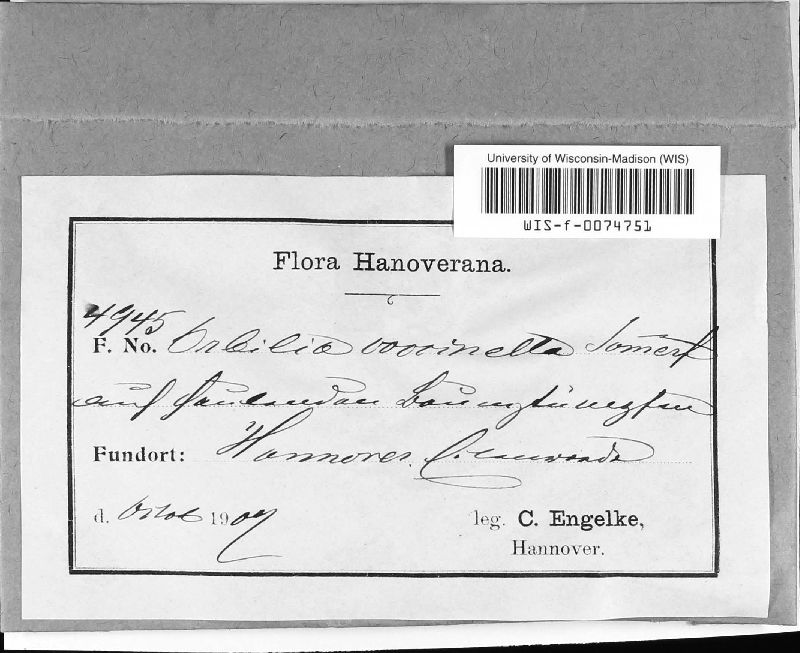 University of Wisconsin-Madison (WIS)
WIS-f-0074751
Flora Hanoverana.
4945
F. No. Orbilia coccinella Somerf
auf faulenden Baumstümpfen
Fundort: Hannover. Eilenriede
d. Octob 1907
leg. C. Engelke,
Hannover.